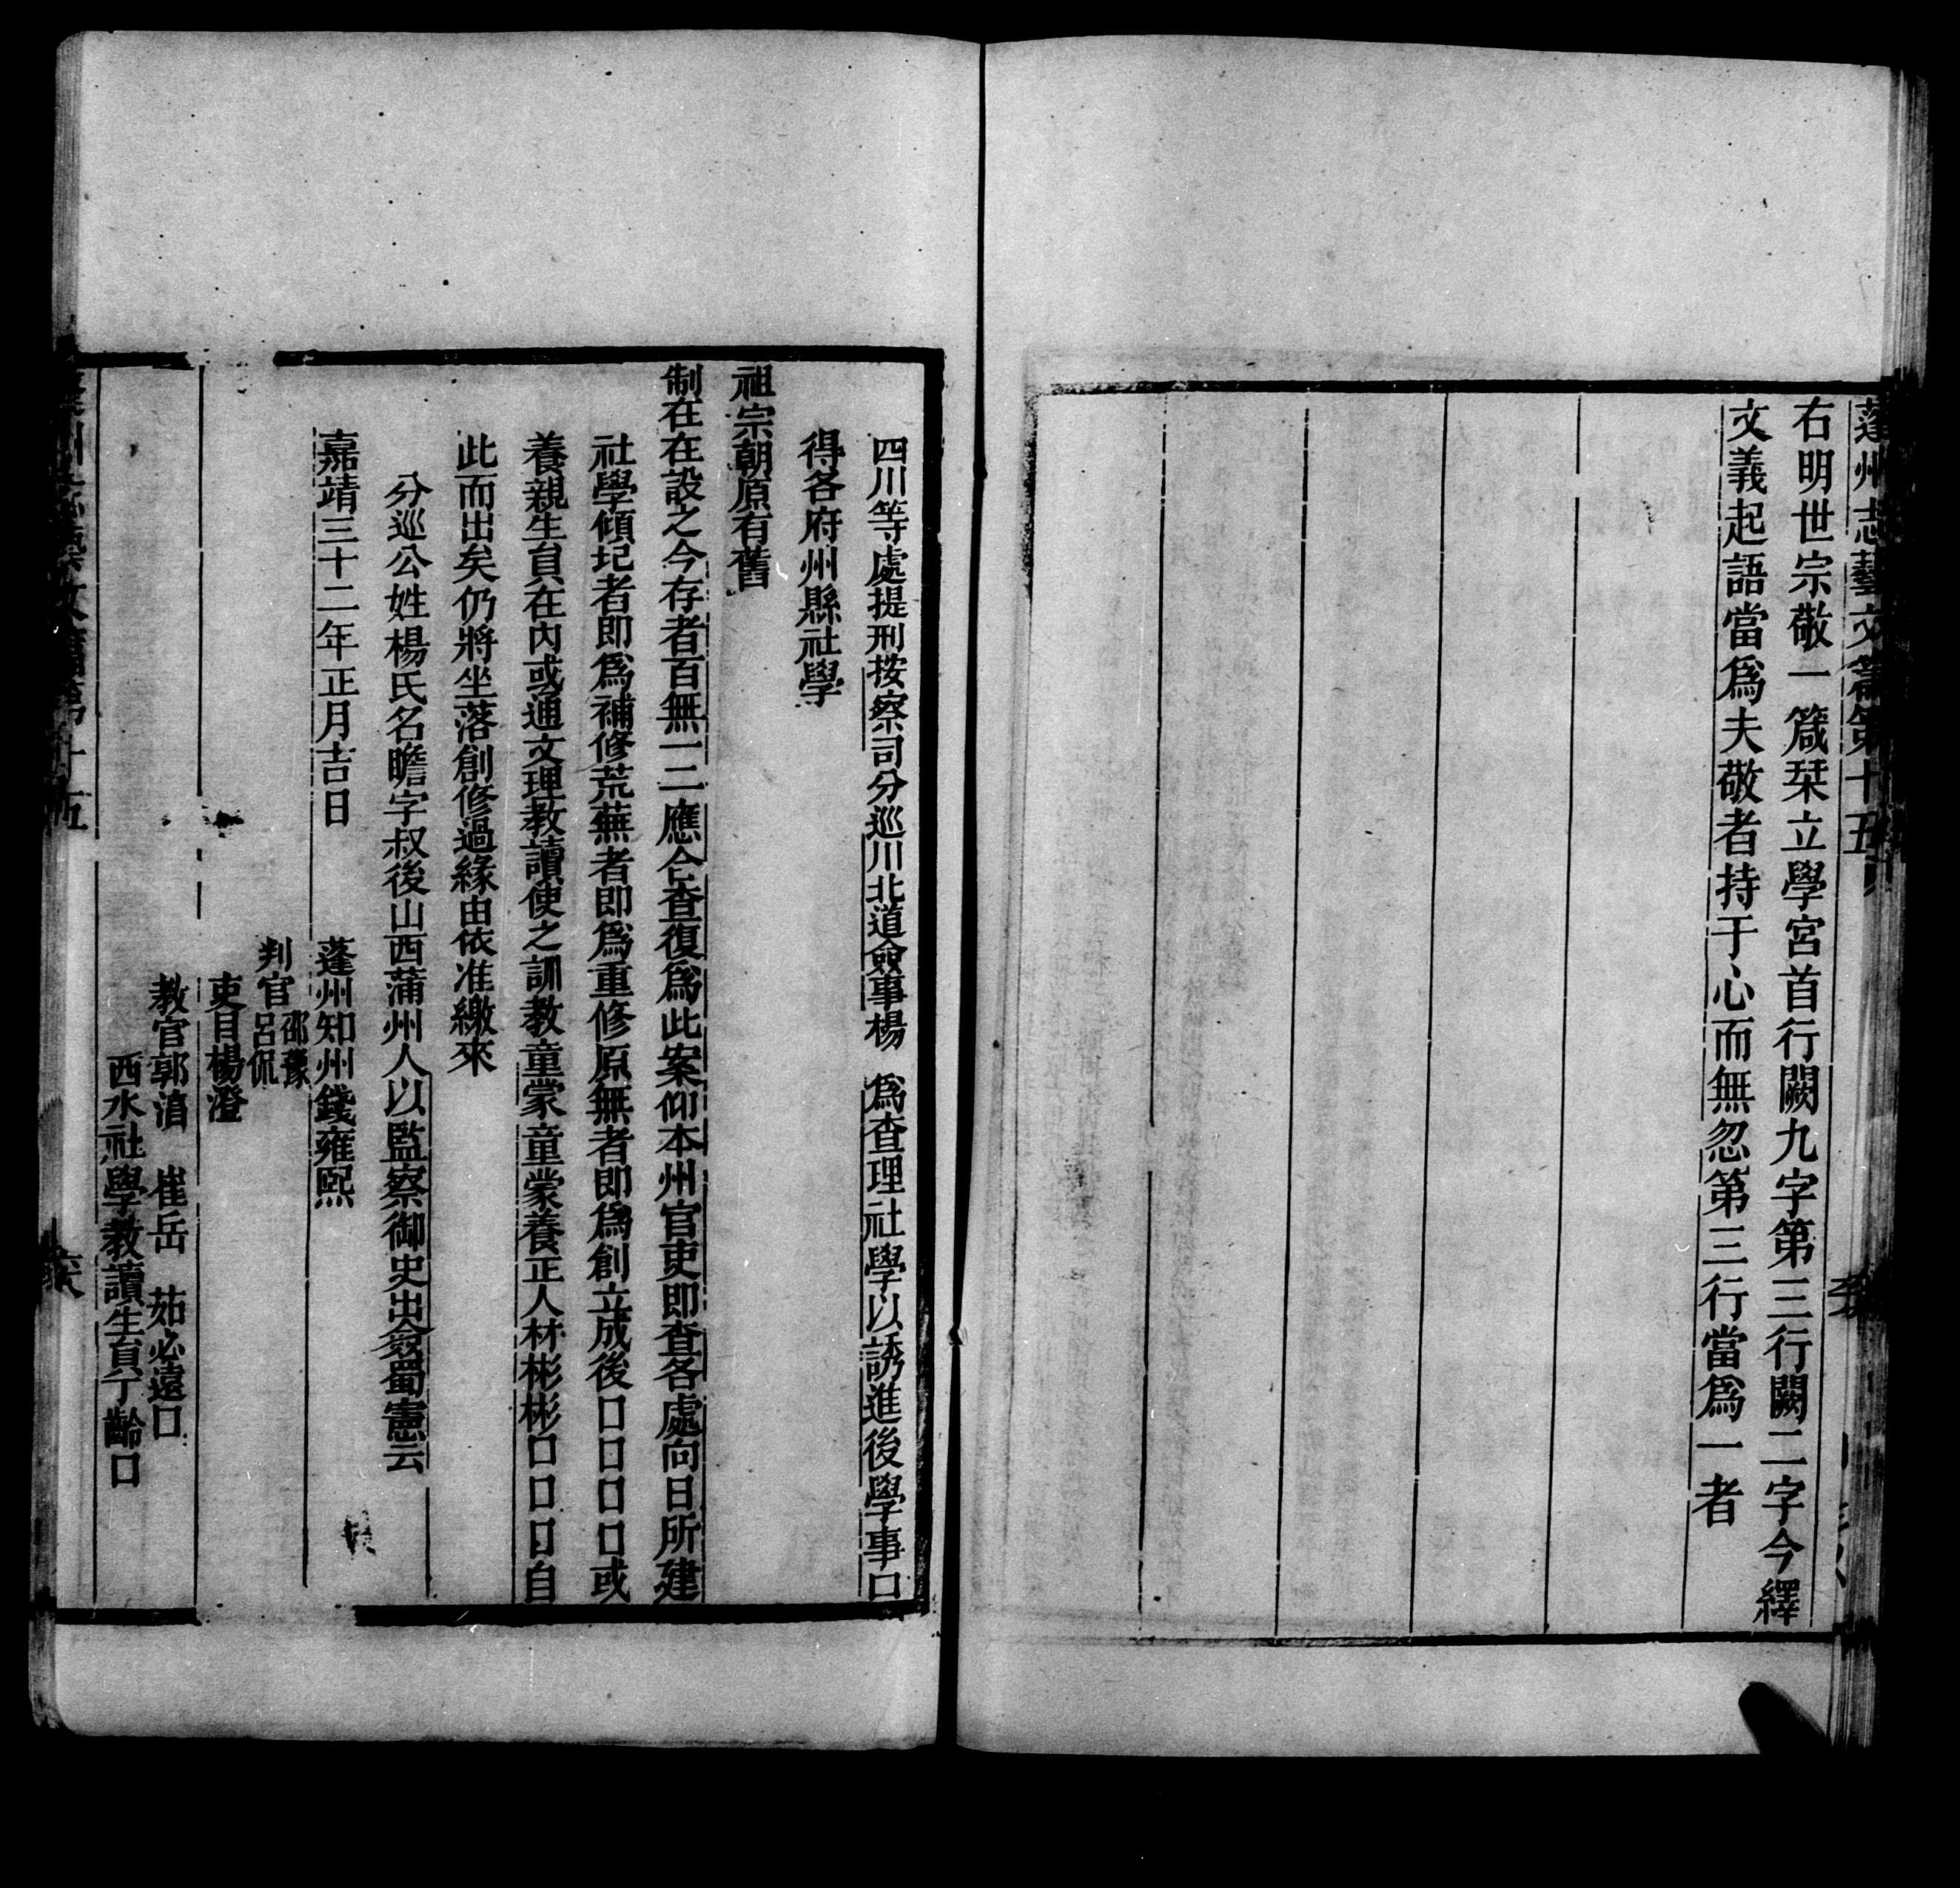 蓬州志藝文篇第十五
右明世宗敬一箴栞立學宮首行闕九字第三行闕二字今繹
文義起語當爲夫敬者持于心而無忽第三行當爲一者
四川等處提刑按察司分巡川北道僉事楊　爲查理社學以誘進後學事口
得各府州縣社學
祖宗朝原有舊
制在在設之今存者百無一二應合查復爲此案仰本州官吏即查各處向日所建
社學傾圮者即爲補修荒蕪者即爲重修原無者即爲創立成後口口口口或
養親生員在內或通文理教讀使之訓教童蒙童蒙養正人材彬彬口口口自
此而出矣仍將坐落創修過緣由依准繳來
分巡公姓楊氏名瞻字叔後山西蒲州人以監察御史出僉蜀憲云
嘉靖三十二年正月吉日　蓬州知州錢雍熙
判官邵豫
呂侃
吏目楊澄
教官郭湇　崔岳　茹必遠口
西水社學教讀生員丁齡口
蓬州志藝文篇第十五　六